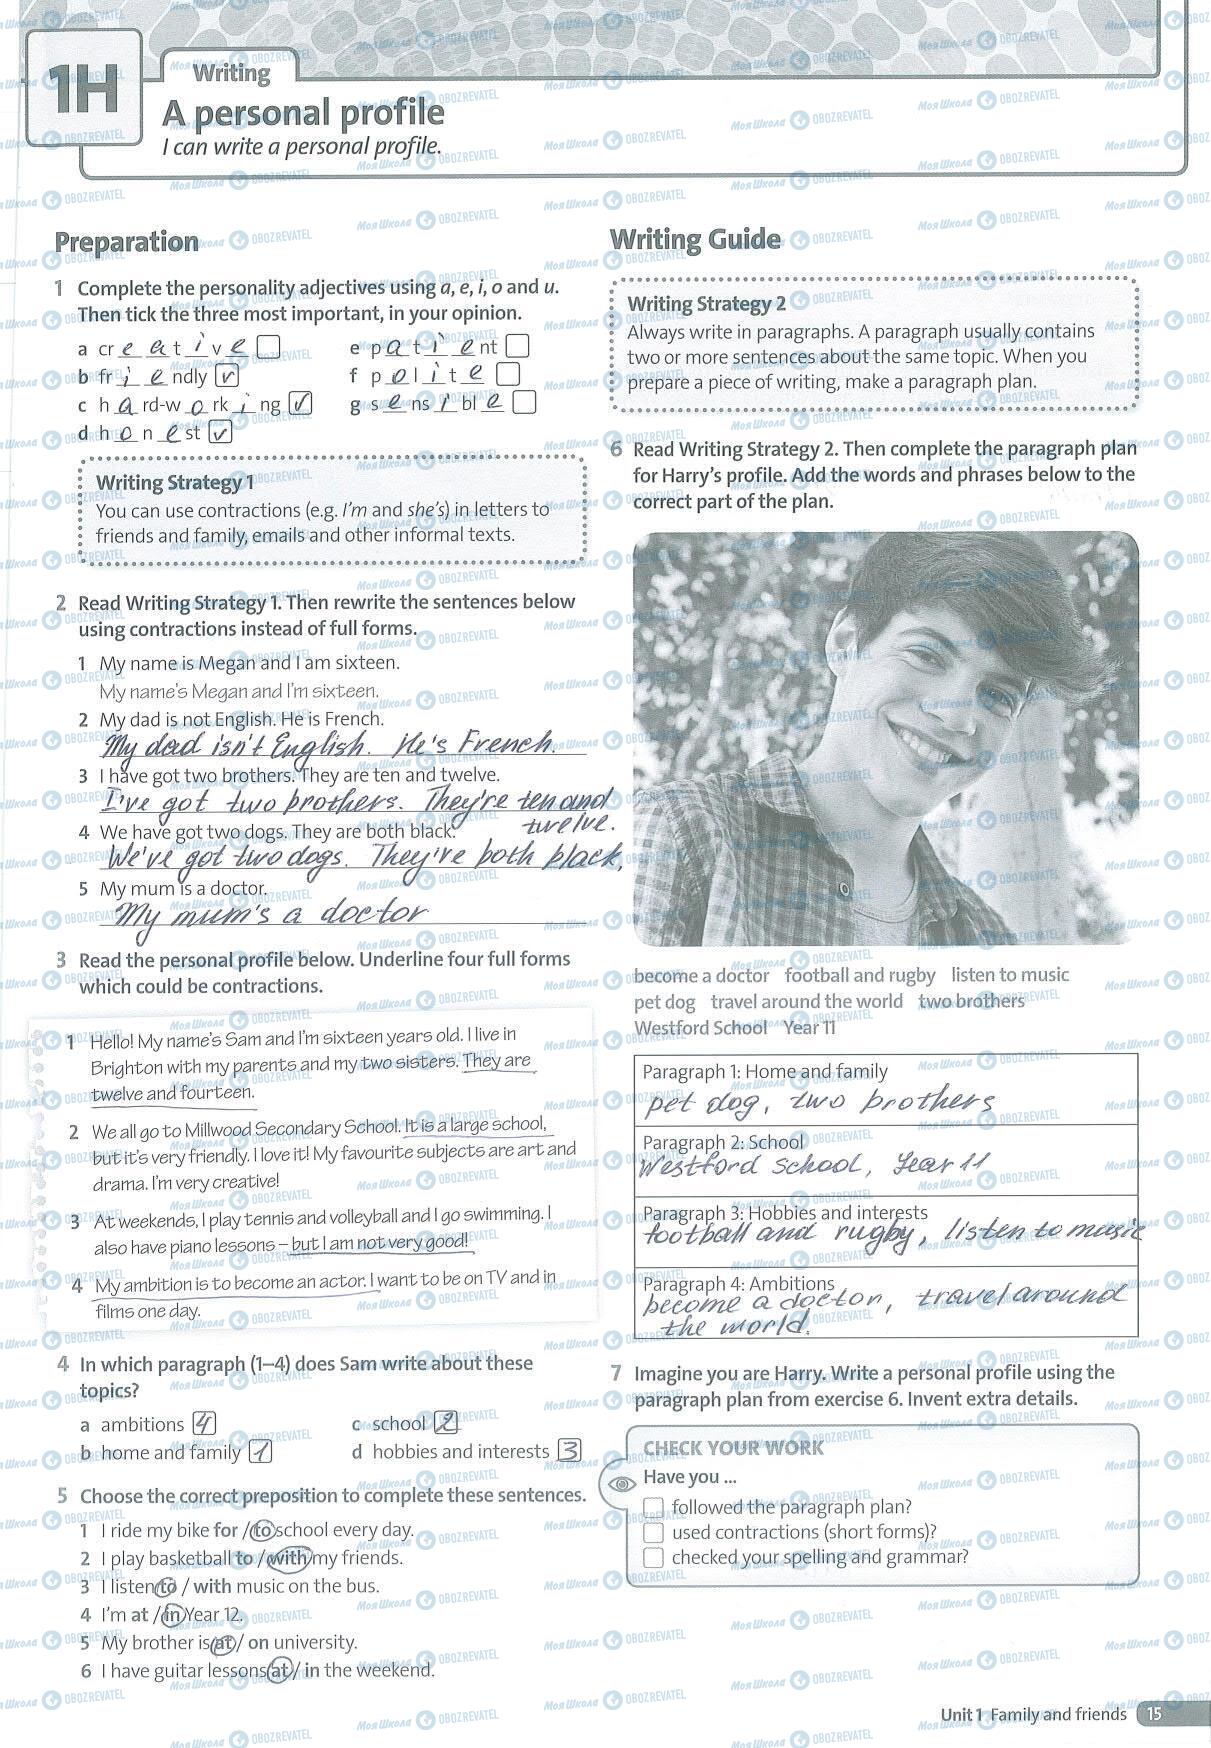 1H
Writing
A personal profile
I can write a personal profile.
Preparation
1 Complete the personality adjectives using a, e, i, o and u.
Then tick the three most important, in your opinion.
a cr e a t i v e
b fr i e ndly v
c h a rd-w o rk i ng v
d h o n e st v
e p a t i e nt
f p o l i t e
g s e ns i bl e
Writing Strategy 1
You can use contractions (e.g. I'm and she's) in letters to
friends and family, emails and other informal texts.
2 Read Writing Strategy 1. Then rewrite the sentences below
using contractions instead of full forms.
1 My name is Megan and I am sixteen.
My name's Megan and I'm sixteen.
2 My dad is not English. He is French.
My dad isn't English. He's French.
3 I have got two brothers. They are ten and twelve.
I've got two brothers. They're ten and
twelve.
4 We have got two dogs. They are both black.
We've got two dogs. They're both black,
5 My mum is a doctor.
My mum's a doctor
3 Read the personal profile below. Underline four full forms
which could be contractions.
1 Hello! My name's Sam and I'm sixteen years old. I live in
Brighton with my parents and my two sisters. They are
twelve and fourteen.
2 We all go to Millwood Secondary School. It is a large school,
but it's very friendly. I love it! My favourite subjects are art and
drama. I'm very creative!
3 At weekends, I play tennis and volleyball and I go swimming. I
also have piano lessons – but I am not very good!
4 My ambition is to become an actor. I want to be on TV and in
films one day.
4 In which paragraph (1–4) does Sam write about these
topics?
a ambitions 4
b home and family 1
c school 2
d hobbies and interests 3
5 Choose the correct preposition to complete these sentences.
1 I ride my bike for / to school every day.
2 I play basketball to / with my friends.
3 I listen to / with music on the bus.
4 I'm at / in Year 12.
5 My brother is at / on university.
6 I have guitar lessons at / in the weekend.
Writing Guide
Writing Strategy 2
Always write in paragraphs. A paragraph usually contains
two or more sentences about the same topic. When you
prepare a piece of writing, make a paragraph plan.
6 Read Writing Strategy 2. Then complete the paragraph plan
for Harry's profile. Add the words and phrases below to the
correct part of the plan.
become a doctor football and rugby listen to music
pet dog travel around the world two brothers
Westford School Year 11
Paragraph 1: Home and family
pet dog, two brothers
Paragraph 2: School
Westford School, Year 11
Paragraph 3: Hobbies and interests
football and rugby, listen to music
Paragraph 4: Ambitions
become a doctor, travel around
the world.
7 Imagine you are Harry. Write a personal profile using the
paragraph plan from exercise 6. Invent extra details.
CHECK YOUR WORK
Have you ...
followed the paragraph plan?
used contractions (short forms)?
checked your spelling and grammar?
Unit 1 Family and friends 15
Моя Школа OBOZREVATEL